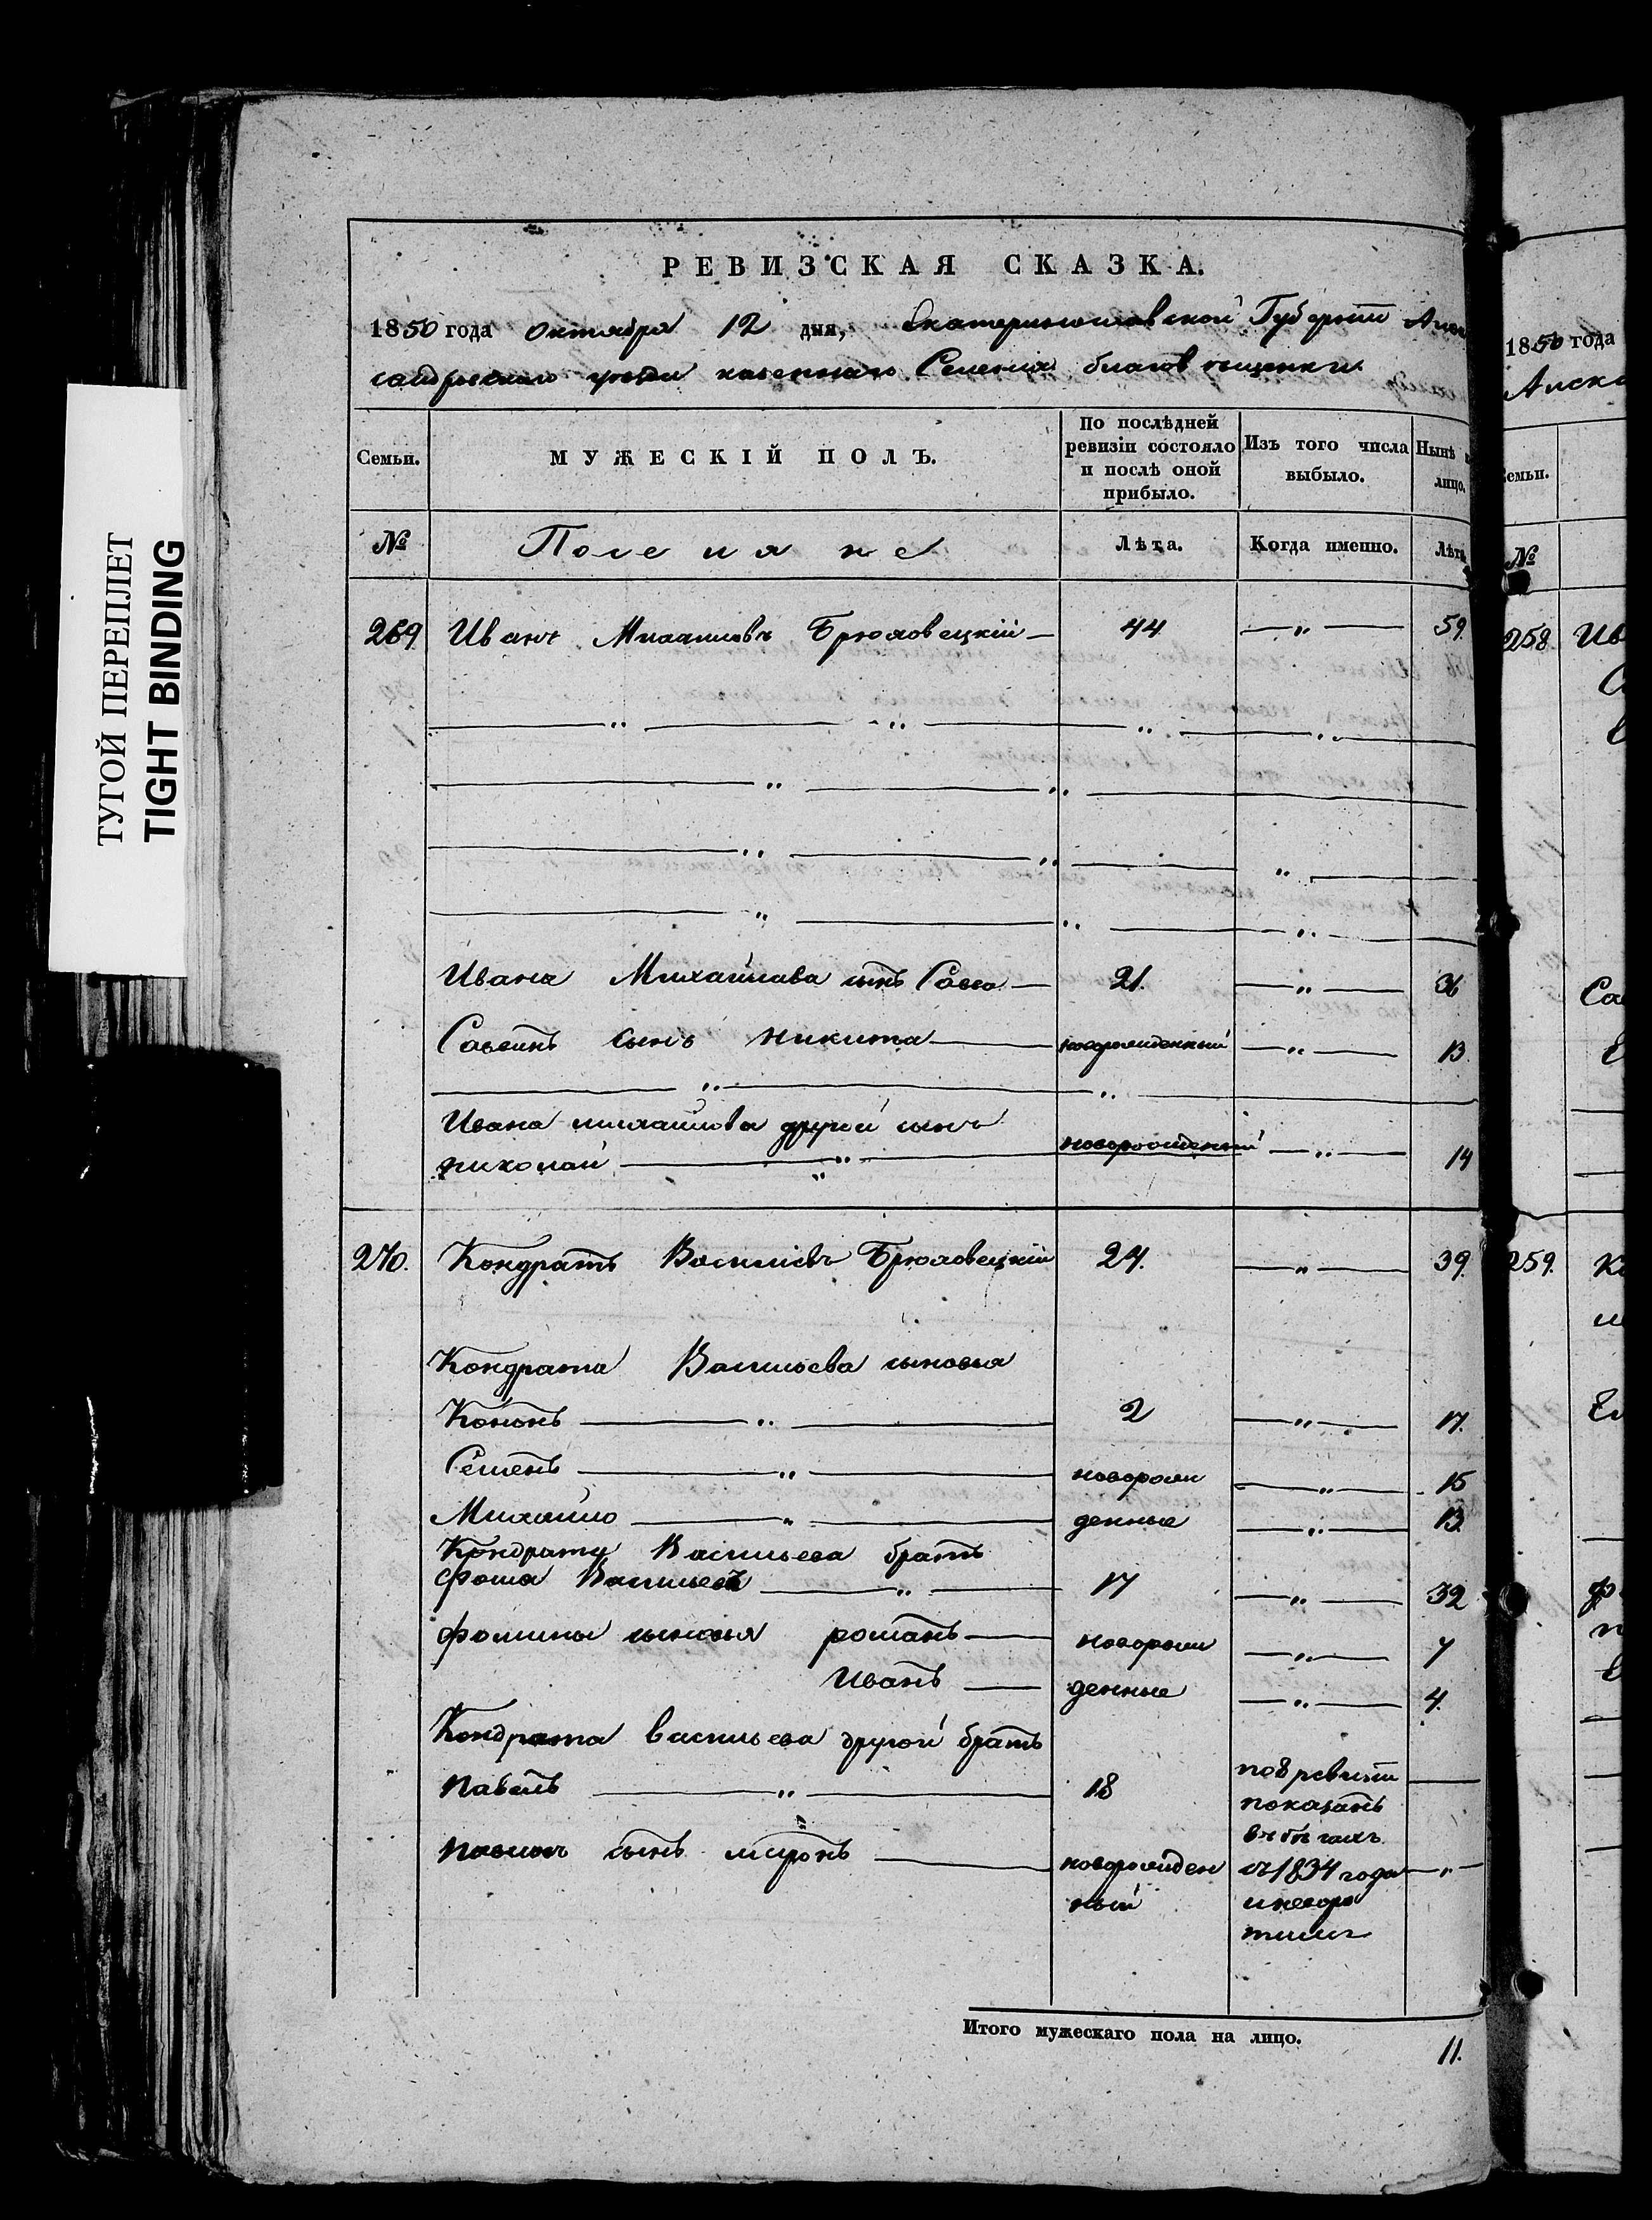 ТУГОЙ ПЕРЕПЛЕТ
TIGHT BINDING
РЕВИЗСКАЯ СКАЗКА.
1850 года октября 12 дня, Екатеринославской Губернии Алек
сандровского уезда казенного Селения благовещенки
Семьи. МУЖЕСКІЙ ПОЛЪ. По послѣдней ревизіи состояло и послѣ оной прибыло. Изъ того числа выбыло. Нынѣ лицо.
№ Поселяне Лѣта. Когда именно. Лѣта
269 Иванъ Михайловъ Брюховецкій 44 59.
Ивана Михайлова сынъ Савва 21. 36
Саввинъ сынъ Никита новорожденный 13
Ивана михайлова другой сынъ
николай новорожденный 14
270. Кондратъ Василіевъ Брюховецкій 24. 39.
Кондрата Васильева сыновья
Кононъ 2 17.
Семенъ новорож 15
Михайло денные 13
Кондрата Васильева братъ
Фома Васильевъ 17 32
фомины сыновья романъ новорож 7
Иванъ денные 4.
Кондрата васильева другой братъ
павелъ 18 по 8 ревизіи
показанъ
въ бегахъ
павловъ сынъ миронъ новорожден съ 1834 года
ный
Итого мужескаго пола на лицо. 11.
1850 года
Алекс
Семьи.
№
258 Ив
259. Ко